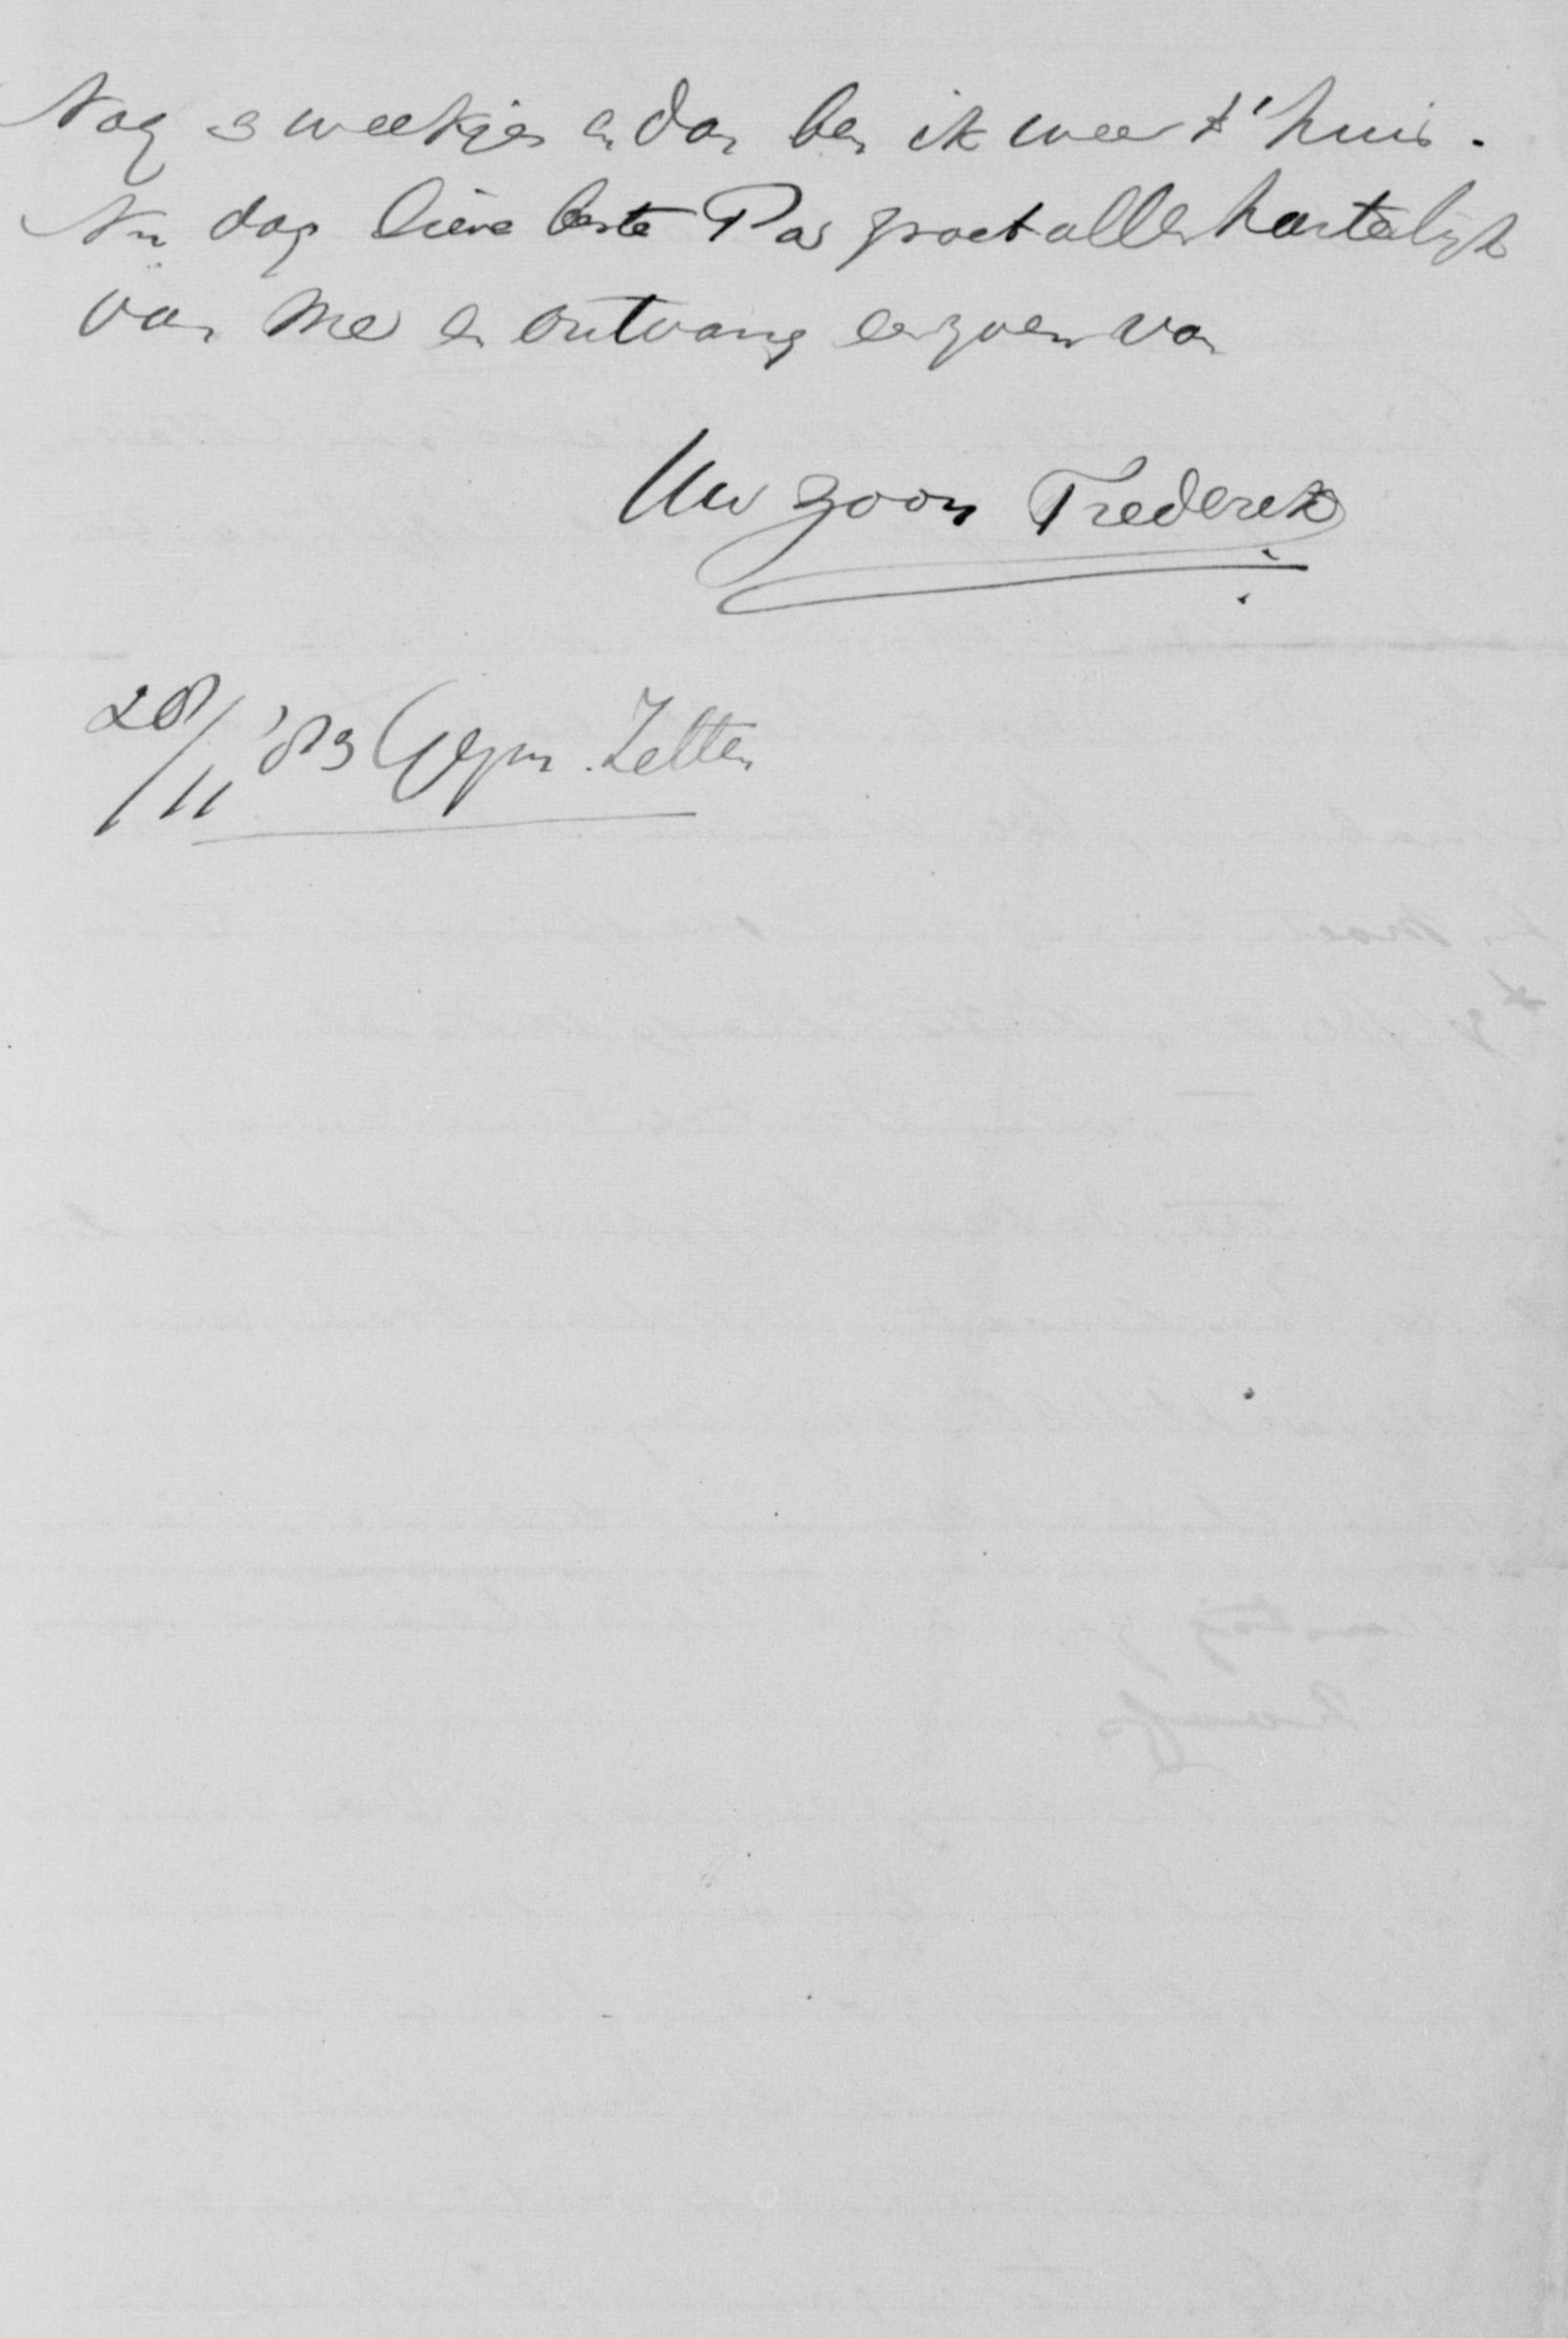 Nog 3 weekjes en dan ben ik weer t'huis.
Nu dag lieve beste Pa groet allen hartelijk
van me en ontvang een zoen van
Uw zoon Frederik
28/11 '83 Gym. Zetten